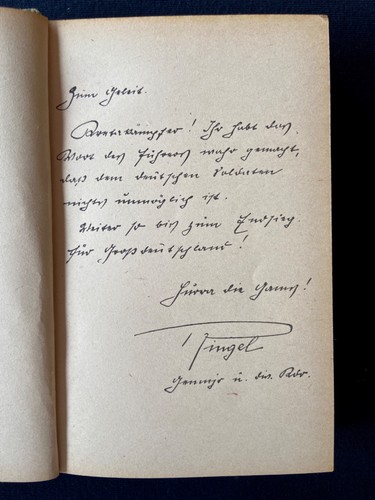 Zum Geleit.
Kretakämpfer! Ihr habt das
Wort des Führers wahr gemacht,
daß dem deutschen Soldaten
nichts unmöglich ist.
Weiter so bis zum Endsieg
für Großdeutschland!
Hurra die Gams!
Ringel
Genmjr u. Div. Kdr.